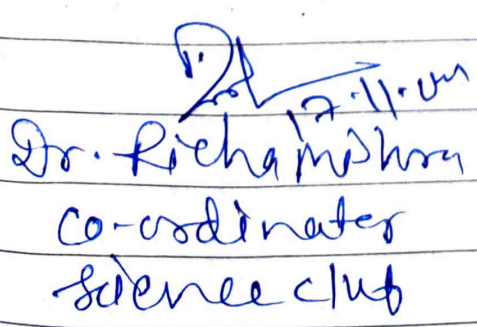 17.11.
Dr. Richa Mishra
co-ordinater
science club